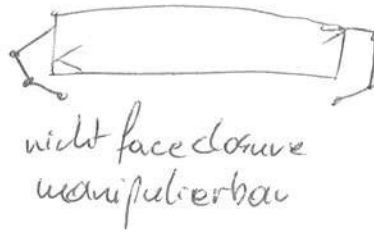 nicht faceclosure
manipulierbar